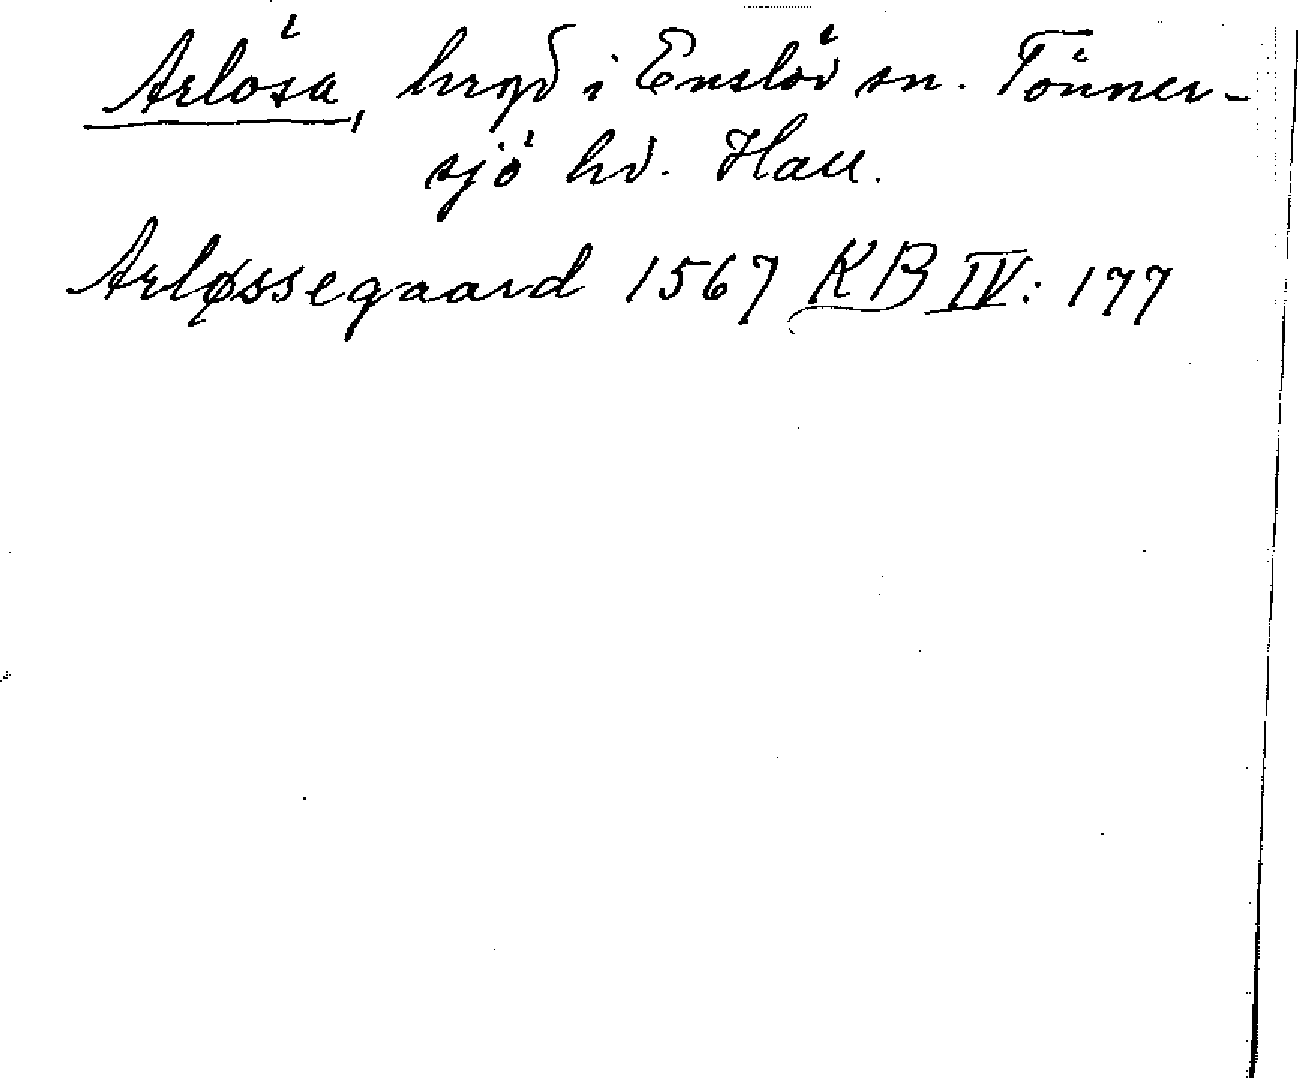 Arlösa, hrgd i Enslöv sn. Tönner-
sjö hd. Hall.
Arløssegaard 1567 KB IV: 177